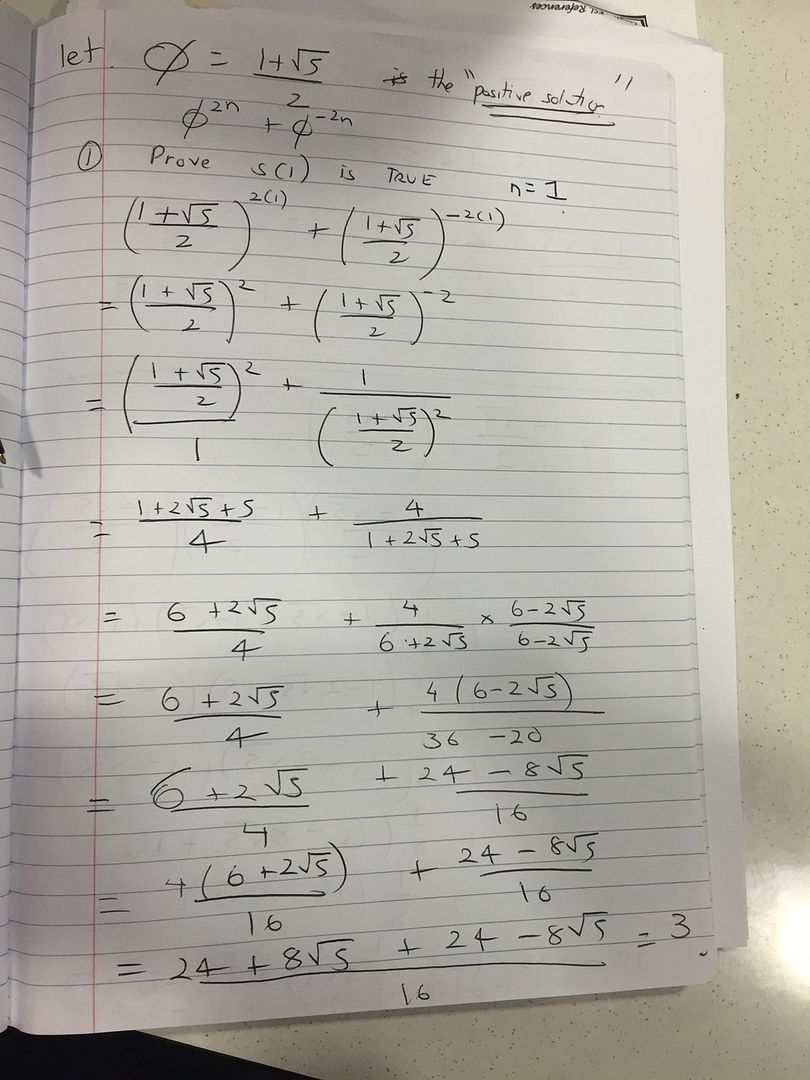 References
let. φ = (1+√5)/2 is the "positive solution"
φ^2n + φ^-2n
① Prove S(1) is TRUE n=1.
((1+√5)/2)^2(1) + ((1+√5)/2)^-2(1)
= ((1+√5)/2)^2 + ((1+√5)/2)^-2
= ((1+√5)/2)^2/1 + 1/((1+√5)/2)^2
= (1+2√5+5)/4 + 4/(1+2√5+5)
= (6+2√5)/4 + 4/(6+2√5) × (6-2√5)/(6-2√5)
= (6+2√5)/4 + 4(6-2√5)/(36-20)
= (6+2√5)/4 + (24-8√5)/16
= 4(6+2√5)/16 + (24-8√5)/16
= (24+8√5+24-8√5)/16 = 3